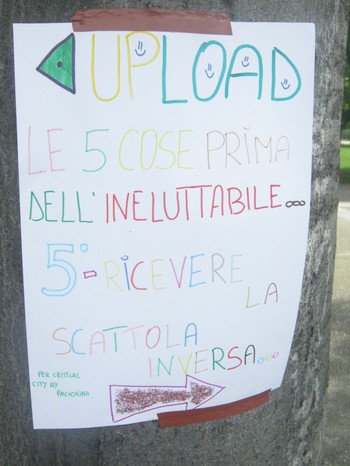 UPLOAD
LE 5 COSE PRIMA
DELL'INELUTTABILE...
5°-RICEVERE
LA
SCATTOLA
INVERSA...
PER CRITICAL
CITY BY